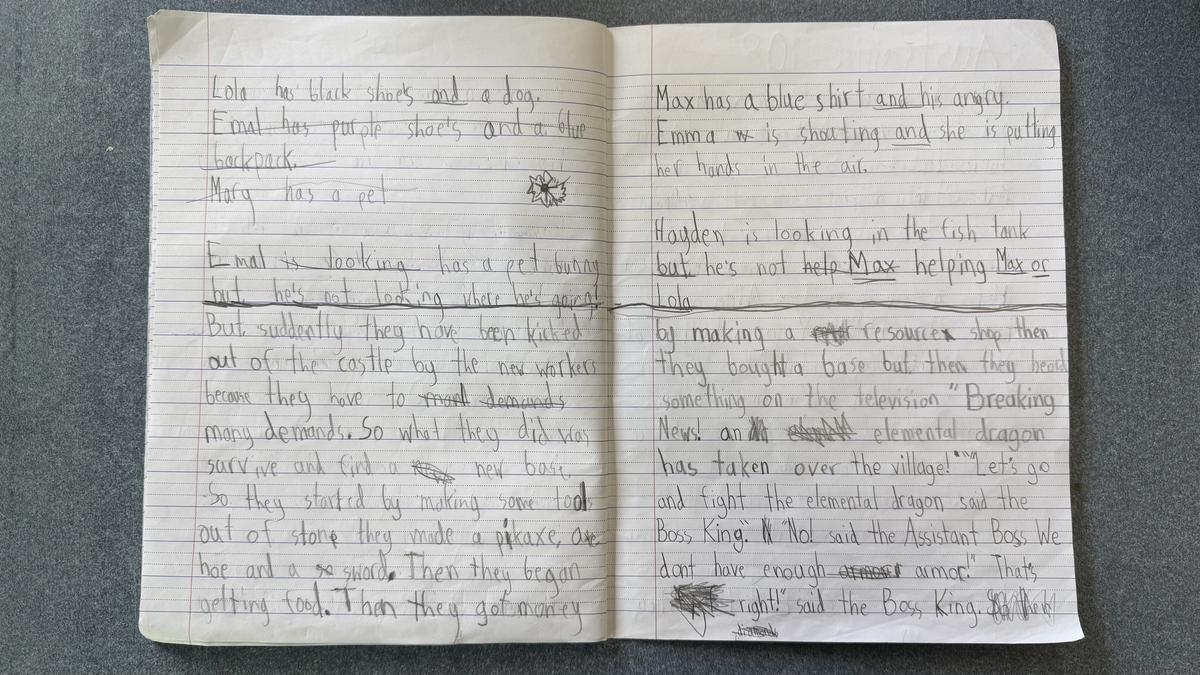 Lola has black shoe's and a dog.
Emal has purple shoe's and a blue
backpack.
Mary has a pet
Emal is looking has a pet bunny
but he's not looking where he's going!
But suddenly they have been kicked
out of the castle by the new workers
because they have to demands
many demands. So what they did was
survive and find a new base.
So they started by making some tools
out of stone they made a pikaxe, axe
hoe and a sword. Then they began
getting food. Then they got money
Max has a blue shirt and his angry.
Emma is shouting and she is putting
her hands in the air.
Hayden is looking in the fish tank
but he's not help Max helping Max or
Lola
by making a resource shop then
they bought a base but then they heard
something on the television "Breaking
News! an elemental dragon
has taken over the village!" "Let's go
and fight the elemental dragon said the
Boss King." "No! said the Assistant Boss We
dont have enough armor!" That's
right!" said the Boss King.